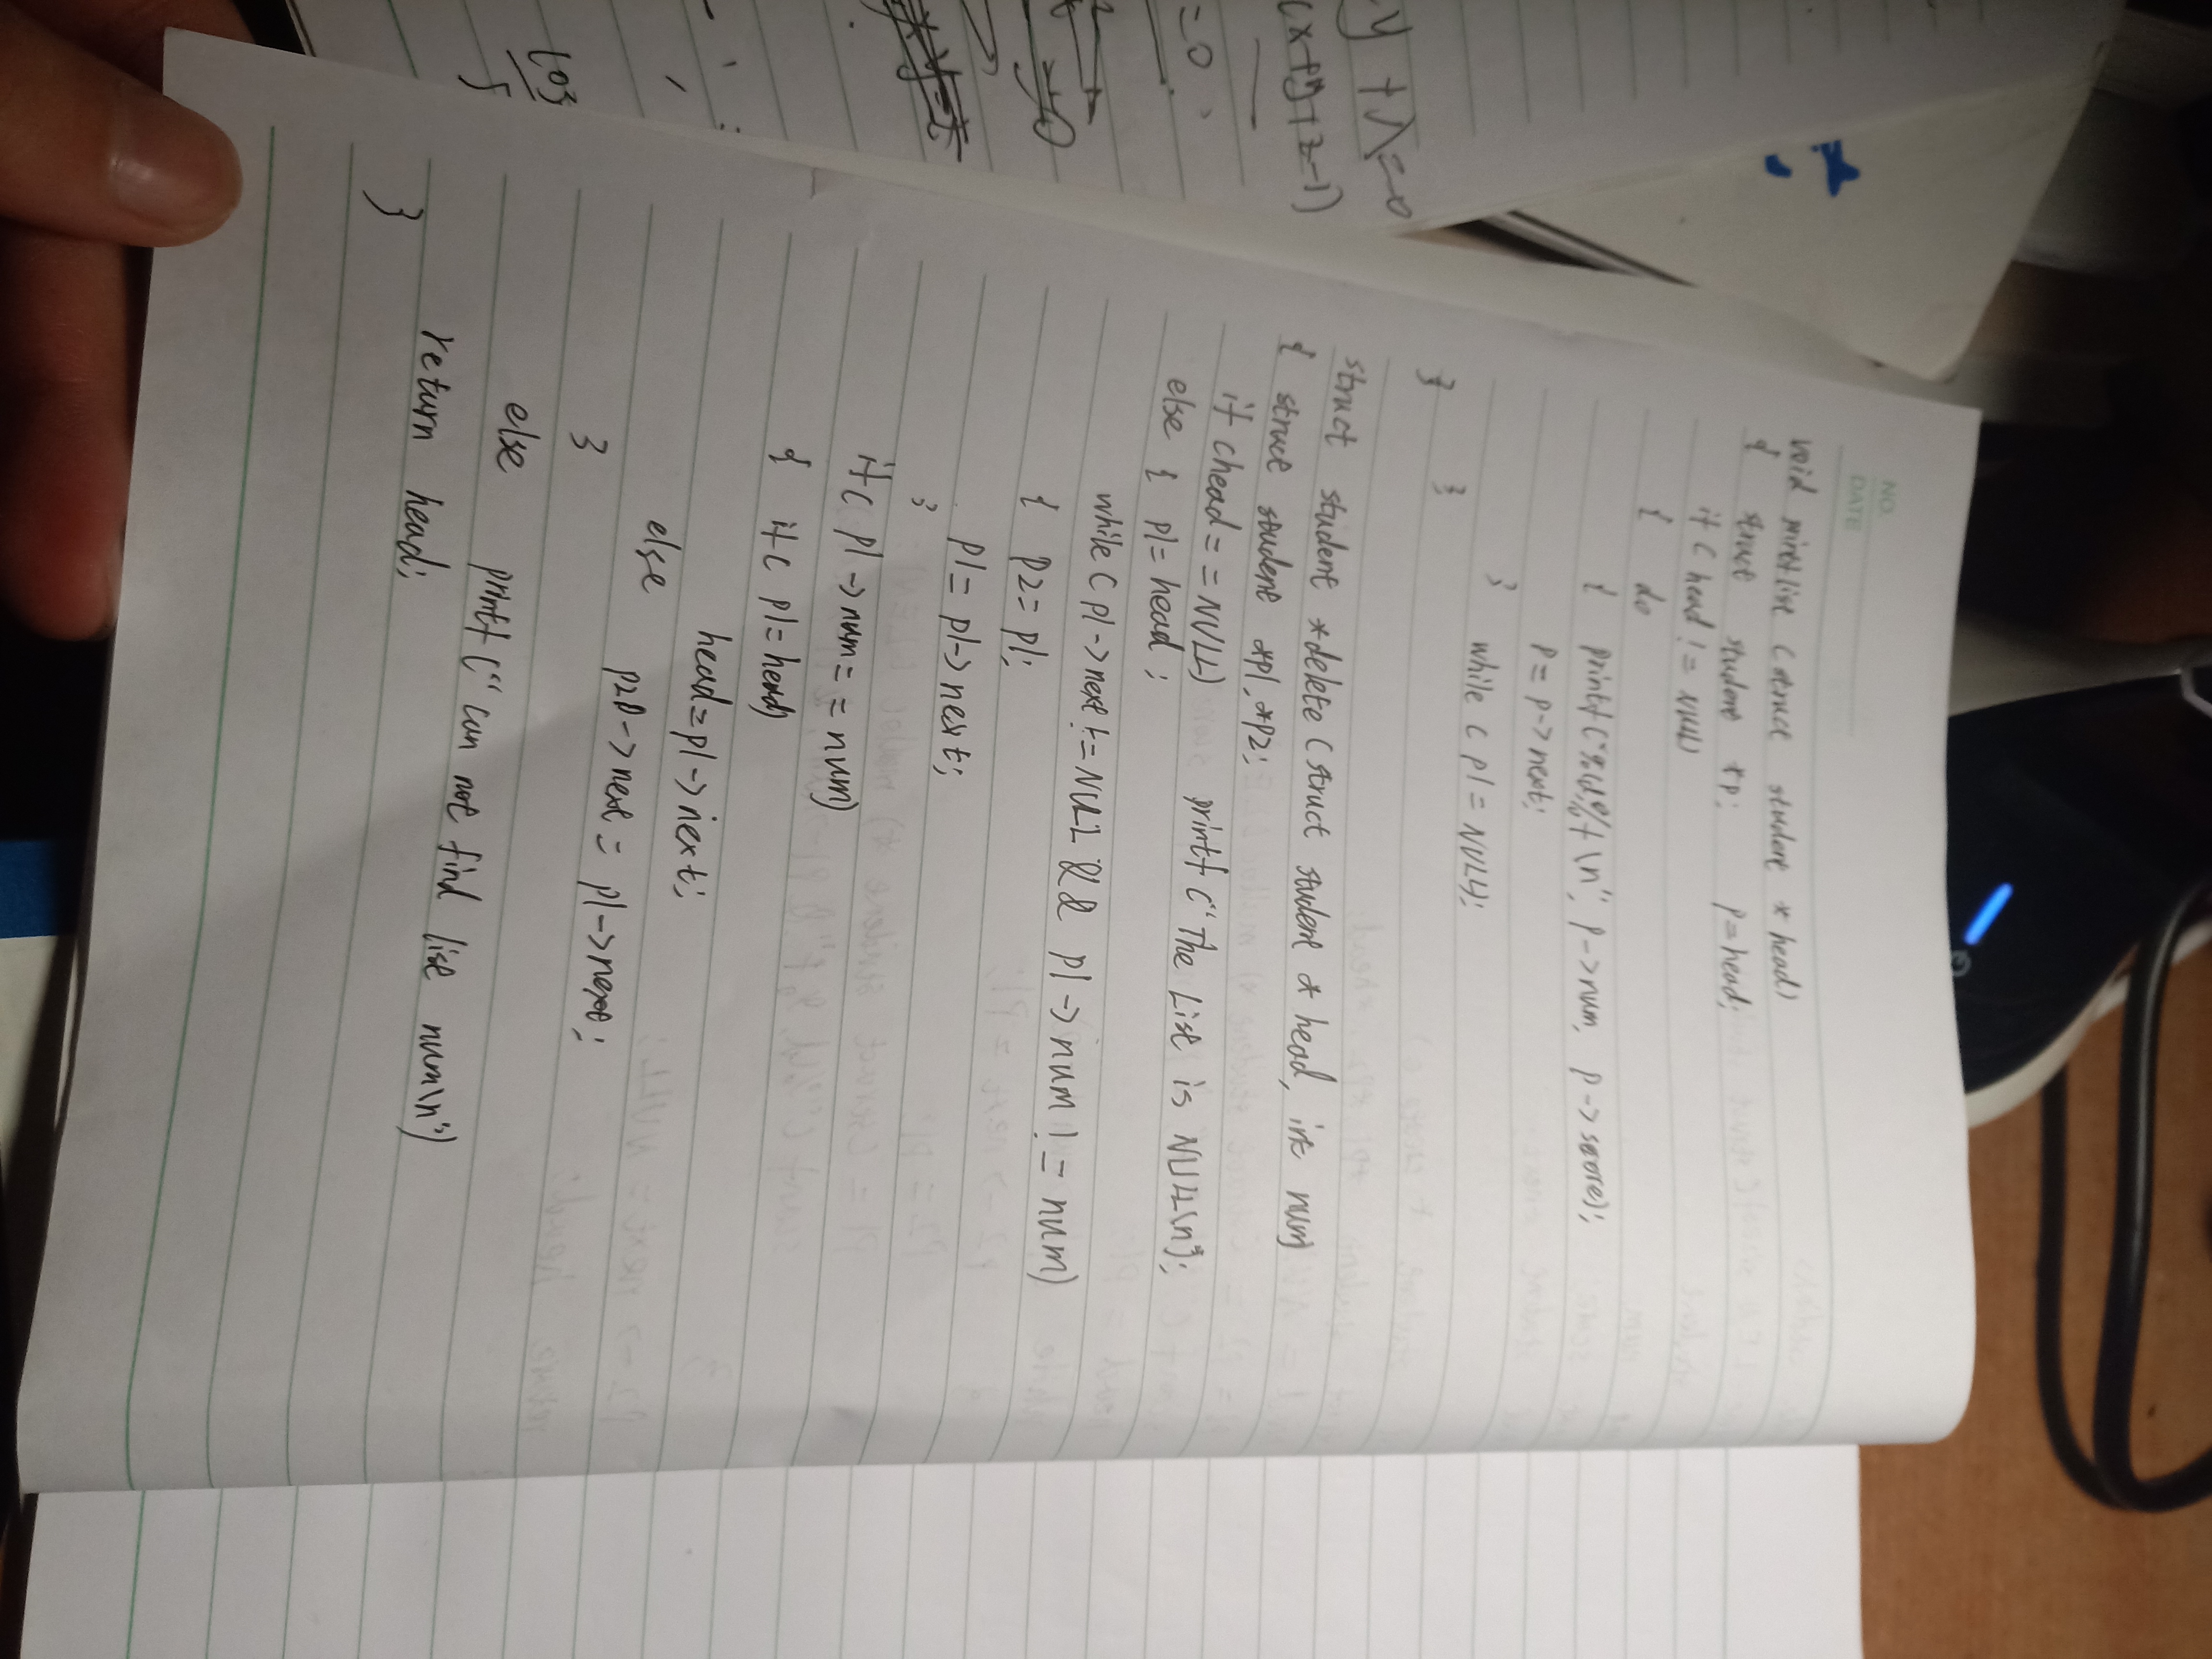 NO.
DATE
void printlist (struct student *head)
{ struct student *p; p=head;
if (head != NULL)
{ do
{ printf("%d%f\n", p->num, p->score);
p=p->next;
} while (p!=NULL);
}
}
struct student *delete (struct student *head, int num)
{ struct student *p1,*p2;
if (head==NULL) printf("The List is NULL\n");
else { p1=head;
while (p1->next!=NULL && p1->num!=num)
{ p2=p1;
p1=p1->next;
}
if (p1->num==num)
{ if (p1=head)
head=p1->next;
else p2->next=p1->next;
}
else printf("can not find list num\n")
return head;
}
y+λ=0
(x+y+z-1)
=0